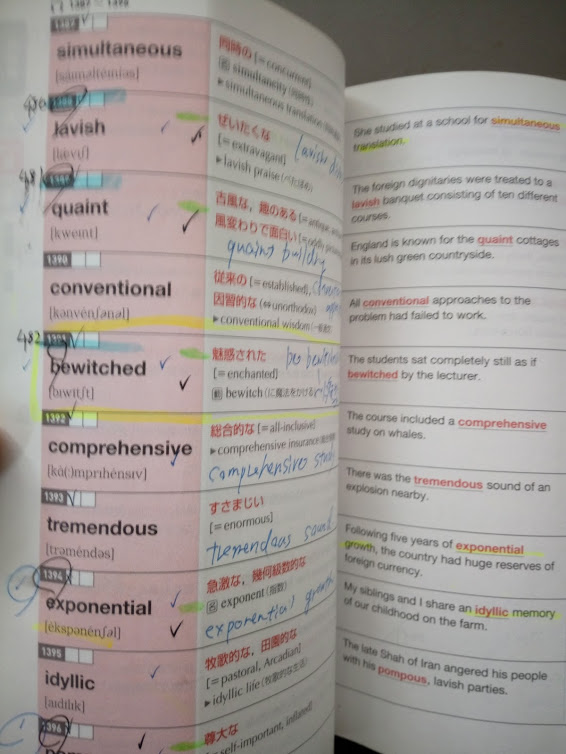 simultaneous
同時の [= concurrent]
名 simultaneity
▶ simultaneous translation
430
lavish
ぜいたくな
[= extravagant]
▶ lavish praise
431
quaint
[kweɪnt]
古風な，趣のある
風変わりで面白い
quaint
1390
conventional
従来の [= established],
因習的な (⇔ unorthodox)
▶ conventional wisdom
432
bewitched
[bɪwɪtʃt]
魅惑された
[= enchanted]
動 bewitch (に魔法をかける)
1392
comprehensive
総合的な [= all-inclusive]
▶ comprehensive insurance
comprehensive
1393
tremendous
[trəméndəs]
すさまじい
[= enormous]
tremendous sound
1394
exponential
[èkspənénʃəl]
急激な，幾何級数的な
名 exponent (指数)
exponential growth
1395
idyllic
牧歌的な，田園的な
[= pastoral, Arcadian]
▶ idyllic life (牧歌的な生活)
1396
尊大な
She studied at a school for simultaneous
translation.
The foreign dignitaries were treated to a
lavish banquet consisting of ten different
courses.
England is known for the quaint cottages
in its lush green countryside.
All conventional approaches to the
problem had failed to work.
The students sat completely still as if
bewitched by the lecturer.
The course included a comprehensive
study on whales.
There was the tremendous sound of an
explosion nearby.
Following five years of exponential
growth, the country had huge reserves of
foreign currency.
My siblings and I share an idyllic memory
of our childhood on the farm.
The late Shah of Iran angered his people
with his pompous, lavish parties.